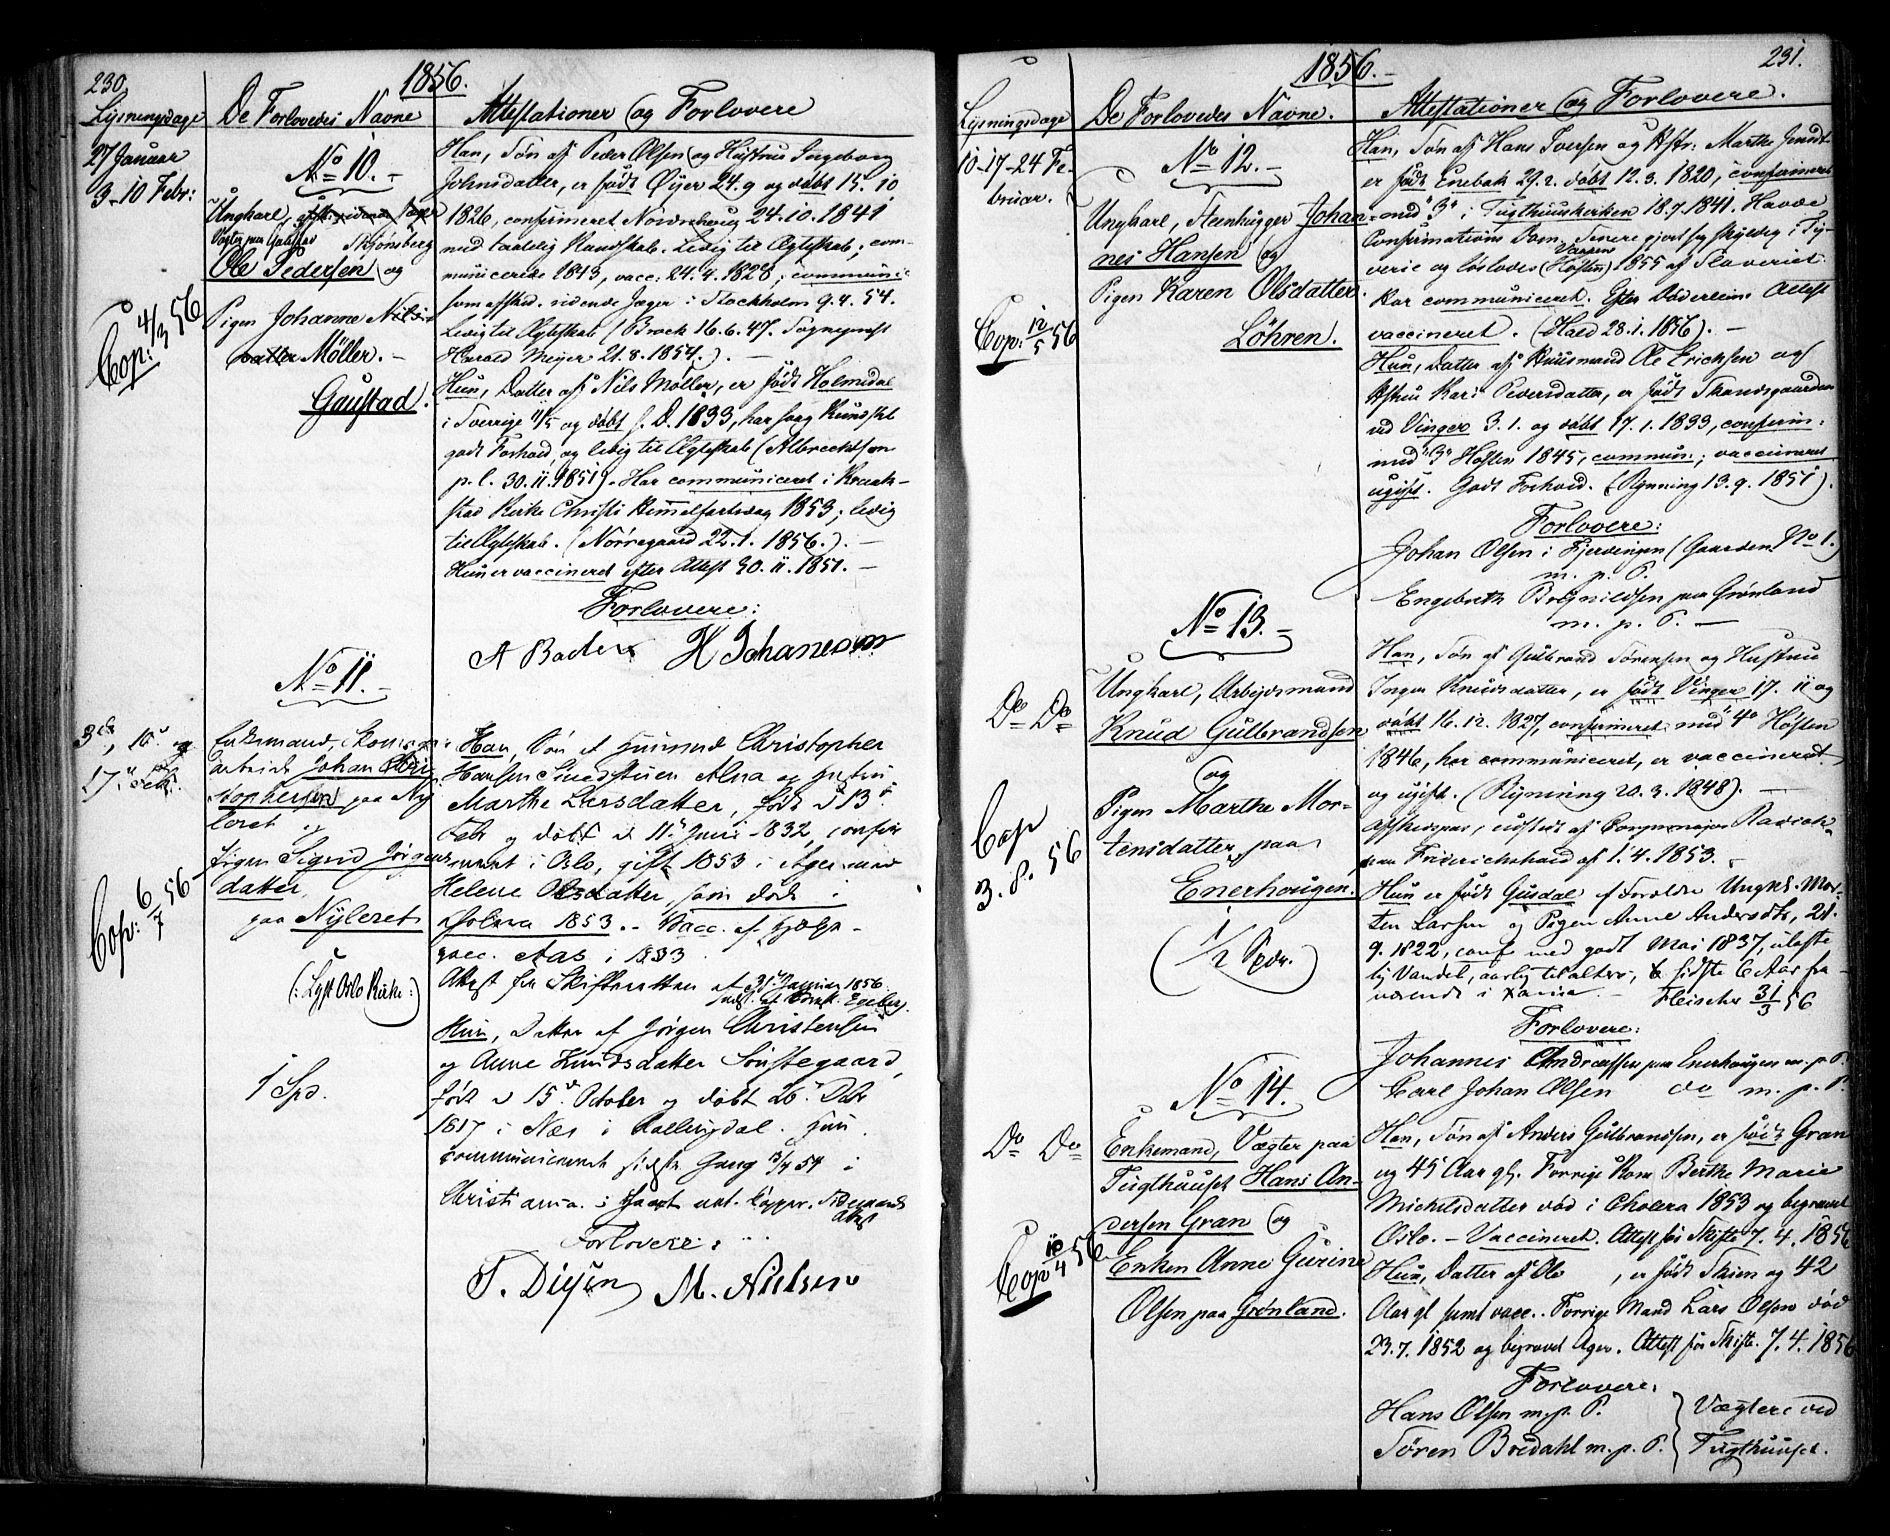 230.
1856.
Lysningsdage
De Forlovedes Navne
Attestationer og Forlovere
27 Januar
3-10 Febr:
No 10. -
Ungkarl,
Vægter paa Gaustad
Ole Pedersen og
Pigen Johanne Nilsdatter
Møller. -
Gaustad.
Cop: 4/3 56
Han, Søn af Peder Olsen og Hustru Ingeborg
Johnsdatter, er født Øijer 24.9 og døbt 15.10
1826, confirmeret 24.10.1841
med taalelig Kundskab. Ledig til Ægteskab; com-
municerede 1843, vacc. 24.4.1828; communi-
som afsked. ridende Jæger i Stockholm 9.4.54.
Ledig til Ægteskab (Brock 16.6.47. Sognepræst
Harald Meyer 21.8.1854.). -
Hun, Datter af Nils Møller, er født Holmedal
i Sverrige 11/5 og døbt s. D. 1833, har svag Kundskab
godt Forhold, og ledig til Ægteskab (Albrechtsen
p. l. 30.11.1851). Har communiceret i Kraak-
stad Kirke Christi Himmelfartsdag 1853; ledig
til Ægteskab. (Nørregaard 22.1.1856.). -
Hun er vaccineret efter Attest 30.11.1851. -
Forlovere:
H Johanesen
No 11. -
3die, 10de og
17de Febr.
Enkemand,
arbeider Johan Chri-
stophersen paa Ny-
leret og
Pigen Sigrid Jørgens-
datter,
paa Nyleret
(: Lyst Oslo Kirke :)
1 Spd.
Cop: 6/7 56
Han, Søn af Husmand Christopher
Hansen Smedstuen Alna og Hustru
Marthe Larsdatter, født d 13de
Febr og døbt d 11te Juni 1832, confir-
meret i Oslo, gift 1853 i Ager med
Helene Olsdatter, som døde i
Cholera 1853. - Vacc. af Hjelpe-
vacc. Aas i 1833.
Attest fra Skifteretten af 31te Januar 1856
Hun, Datter af Jørgen Christensen
og Anne Knudsdatter Sønstegaard,
født d 15de October og døbt 26de Octbr
1817 i Næs i Hallingdal. Hun
communicerede sidste Gang 13/7 54 i
Christiania.
Attest
Forlovere:
T. Diesen M. Nielsen
231.
1856. -
Lysningsdage
De Forlovedes Navne.
Attestationer og Forlovere.
10-17-24 Fe-
bruar.
No 12. -
Ungkarl, Steenhugger Johan-
nes Hansen og
Pigen Karen Olsdatter.
Löhren.
Cop: 12/5 56
Han, Søn af Hans Iversen og Hstr: Marthe
er født Enebak 29.2. døbt 12.3. 1820, confirmeret
med "3" i Tugthuuskirken 18.7.1841. Havde
Confirmations Dom. Senere gjort sig skyldig i Ty-
verie og løslodes (Høsten) Vaaren 1855 af Slaveriet.
Har communiceret. Efter Döderleins Attest
vaccineret. (Hald 28.1.1856). -
Hun, Datter af Huusmand Ole Ericksen og
Hstru Kari Pedersdatter, er født Strandsgaarden
ved Vinger 3.1. og døbt 17.1.1833, confirm:
med "3" Høsten 1845, commun:, vaccineret
ugift. Godt Forhold. (Rynning 13.9.1851).
Forlovere:
Johan Olsen i Fjerdingen (Gaarden No 1.)
m. p. P.
Engebreth Brynildsen paa Grønland
m. p. P. -
No 13. -
Do Do
Ungkarl, Arbeidsmand
Knud Gulbrandsen
og
Pigen Marthe Mor-
tensdatter, paa
Enerhougen.
(1/2 Spdr.)
Cop
3. 8. 56
Han, Søn af Gulbrand Sørensen og Hustru
Inger Knudsdatter, er født Vinger 17.11 og
døbt 16.12.1827, confirmeret med "4" Høsten
1846, har communiceret, er vaccineret
og ugift. (Rynning 20.3.1848). -
Afskedspas, udstedt af
paa Frideriekshald af 1.4.1853. -
Hun er født Gusdal af Forældre Ungk. Mor-
ten Larsen og Pigen Anne Andersdtr, 21.
9.1822, conf med godt Mai 1837, ulaste-
lig Vandel, aarlig til alters, sidste 6 Aar fra-
værende i Xania. - Fleischer 31/3 56
Forlovere:
Johannes Andreassen paa Enerhougen m. p. P.
Carl Johan Olsen do m. p. P.
No 14. -
Do Do
Enkemand, Vægter paa
Tugthuuset Hans An-
dersen Gran og
Enken Anne Gurine
Olsen paa Grønland.
Cop 10/4 56
Han, Søn af Anders Gulbrandsen, er født Gran
og 45 Aar gl. Forrige Kone Berthe Marie
Michelsdatter død i Cholera 1853 og begravet
Oslo. - Vaccineret. Attest for Skifte 7.4.1856
Hun, Datter af Ole , er født Skien og 42
Aar gl samt vacc. Forrige Mand Lars Olsen død
23.7.1852 og begravet Ager. Attest for Skifte 7.4.1856
Forlovere.
Hans Olsen m. p. P. } Vægtere ved
Søren Bredahl m. p. P. } Tugthuuset.